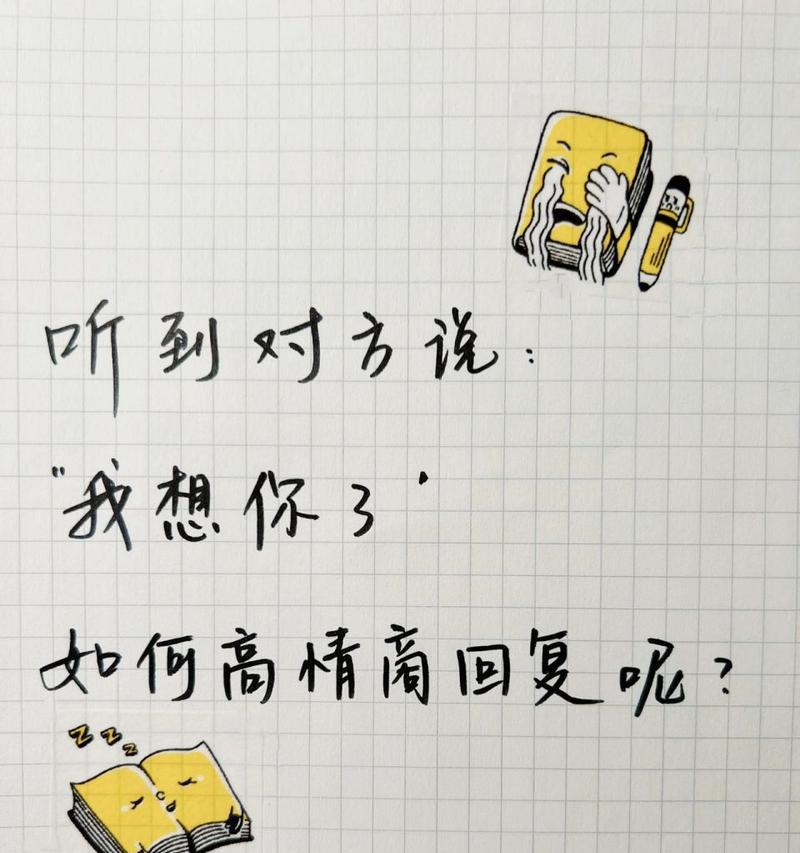 听到对方说：
"我想你了"
如何高情商回复呢？
zzz